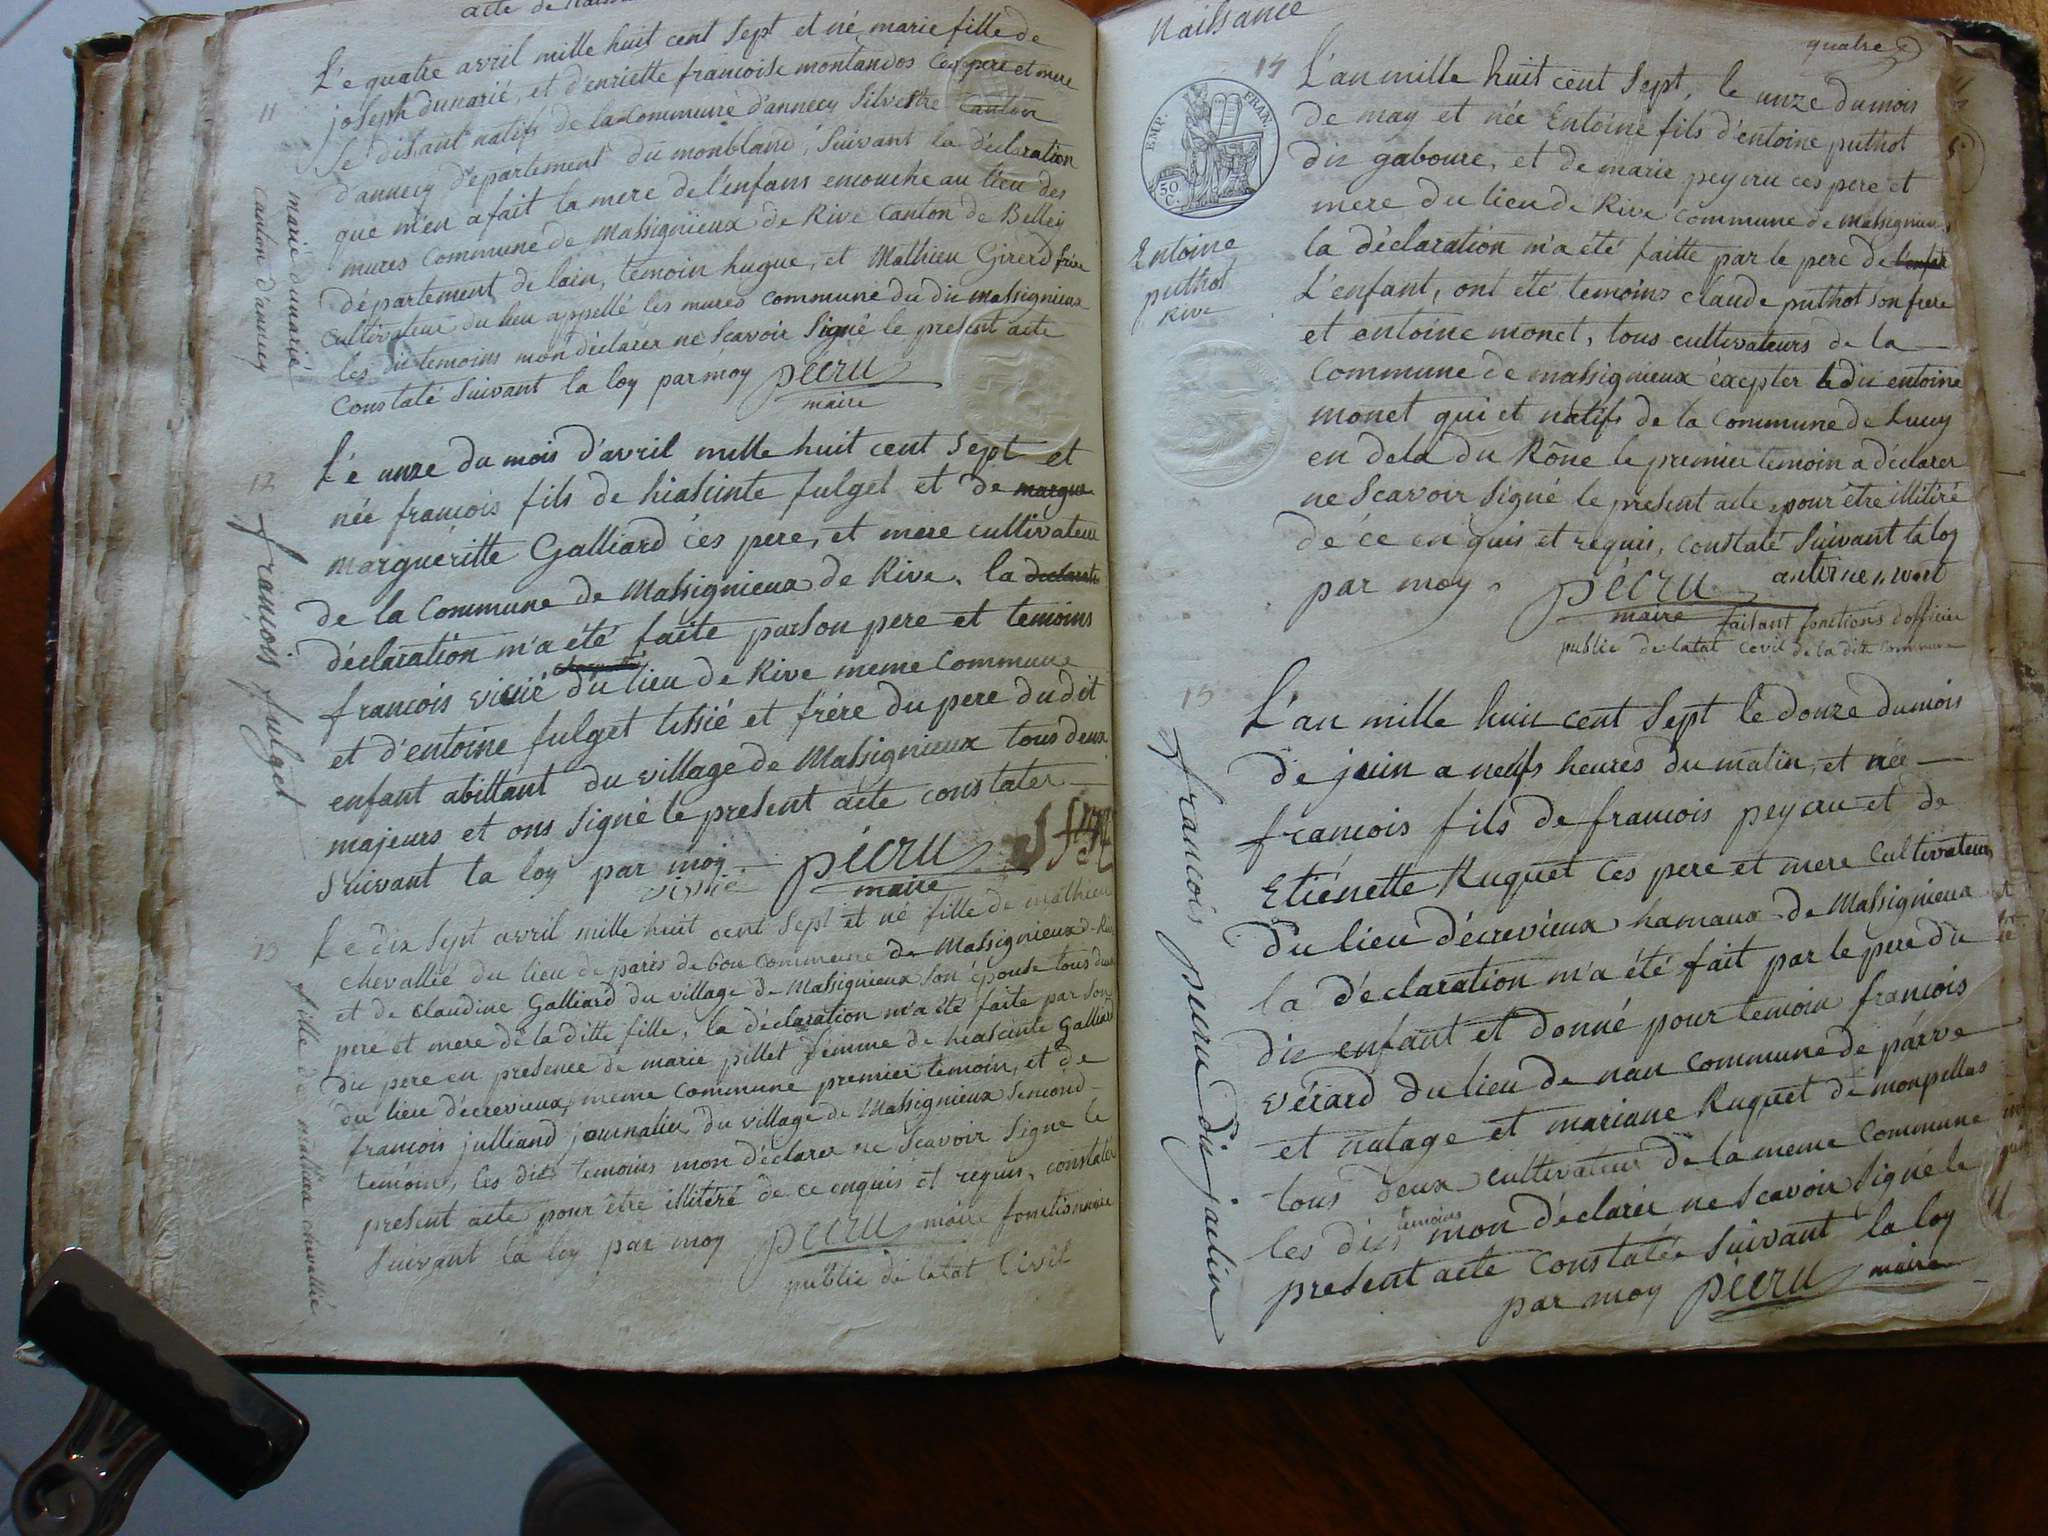 acte de
11
Le quatre avril mille huit cent Sept et né marie fille de
joseph dunarié, et d'enriette francoise montandos Ces pere et mere
Se disant natifs de la Commune d'annecy Silvestre Canton
d'annecy département du monbland, Suivant la déclaration
que m'en a fait la mere de l'enfans encouche au lieu des
mures Commune de Massignieux de Rive Canton de Belley
département de lain, temoin hugue, et Mathieu Girerd frere
Cultivateur du lieu appellé les mures commune du dit massignieux
les dit temoins mon déclarér ne Scavoir Signé le present acte
Constaté Suivant la loy par moy pécru
maire
marie dunarié
canton d'annecy
12
Le unze du mois d'avril mille huit cent Sept et
née francois fils de hiascinte fulget et de margue
marguéritte Galliard cés pere, et mere cultivateur
de la Commune de Massignieux de Rive, la declarati
déclaration m'a été faite par son pere et temoins
francois vivié du lieu de Rive meme Commune
et d'entoine fulget tissié et frére du pere du dit
enfant abittant du village de Massignieux tous deux
majeurs et ons Signé le present acte constater
Suivant la loy par moy pécru
vivié
maire
francois fulget
13
Le dix Sept avril mille huit cent Sept et né fille de mathieu
chevallié du lieu de paris de bou commune de Massignieux de Rive
et de Claudine Galliard du village de Massignieux Son épouse tous deux
pere et mere de la ditte fille, la déclaration m'a été faite par Son
dit pere en presence de marie pillet femme de hiascinte Galliard
du lieu décrevieux, meme commune premier temoin, et de
francois julliand journalier du village de Massignieux Segond
temoin, les dits temoins mon déclarer ne Scavoir Signe le
present acte pour être illitéré de ce enquis et requis, constater
Suivant la loy par moy pécru maire fonctionnaire
public de latat Civil
fille de mathieu chevallié
Naissance
quatre
14
EMP. FRAN.
50 C.
L'an mille huit cent Sept, le unze du mois
de may et née Entoine fils d'entoine puthot
dit gaboure, et de marie peycru ces pere et
mere du lieu de Rive commune de Massignieux
la déclaration m'a été faitte par le pere de l'enfat
L'enfant, ont été temoins claude puthot Son frere
et entoine monet, tous cultivateurs de la
Commune de massignieux éxcepter le dit entoine
monet qui et natifs de la Commune de Lucey
en dela du Rône le premier temoin a déclarer
ne Scavoir Signé le present acte pour être illitiré
dé ce enquis et requis, constaté Suivant la loy
par moy, pécru
maire faisant fonctions dofficier
public de latat Civil de la ditte Commune
Entoine
puthot
Rive
15
L'an mille huit cent Sept le douze du mois
de juin a neufs heures du matin, et née
francois fils de francois peycru et de
Etiénette Ruquet Ces pere et mere Cultivateur
du lieu décrevieux hamaux de Massignieux
la déclaration m'a été fait par le pere du
dit enfant et donné pour temoin francois
vérard du lieu de nan commune de parve
et natage et mariane Ruquet de monpellas
tous deux cultivateur de la meme commune
les dits temoins mon déclarér ne Scavoir Signé le
present acte Constatée Suivant la loy
par moy pécru maire
francois pecru dit jaclin